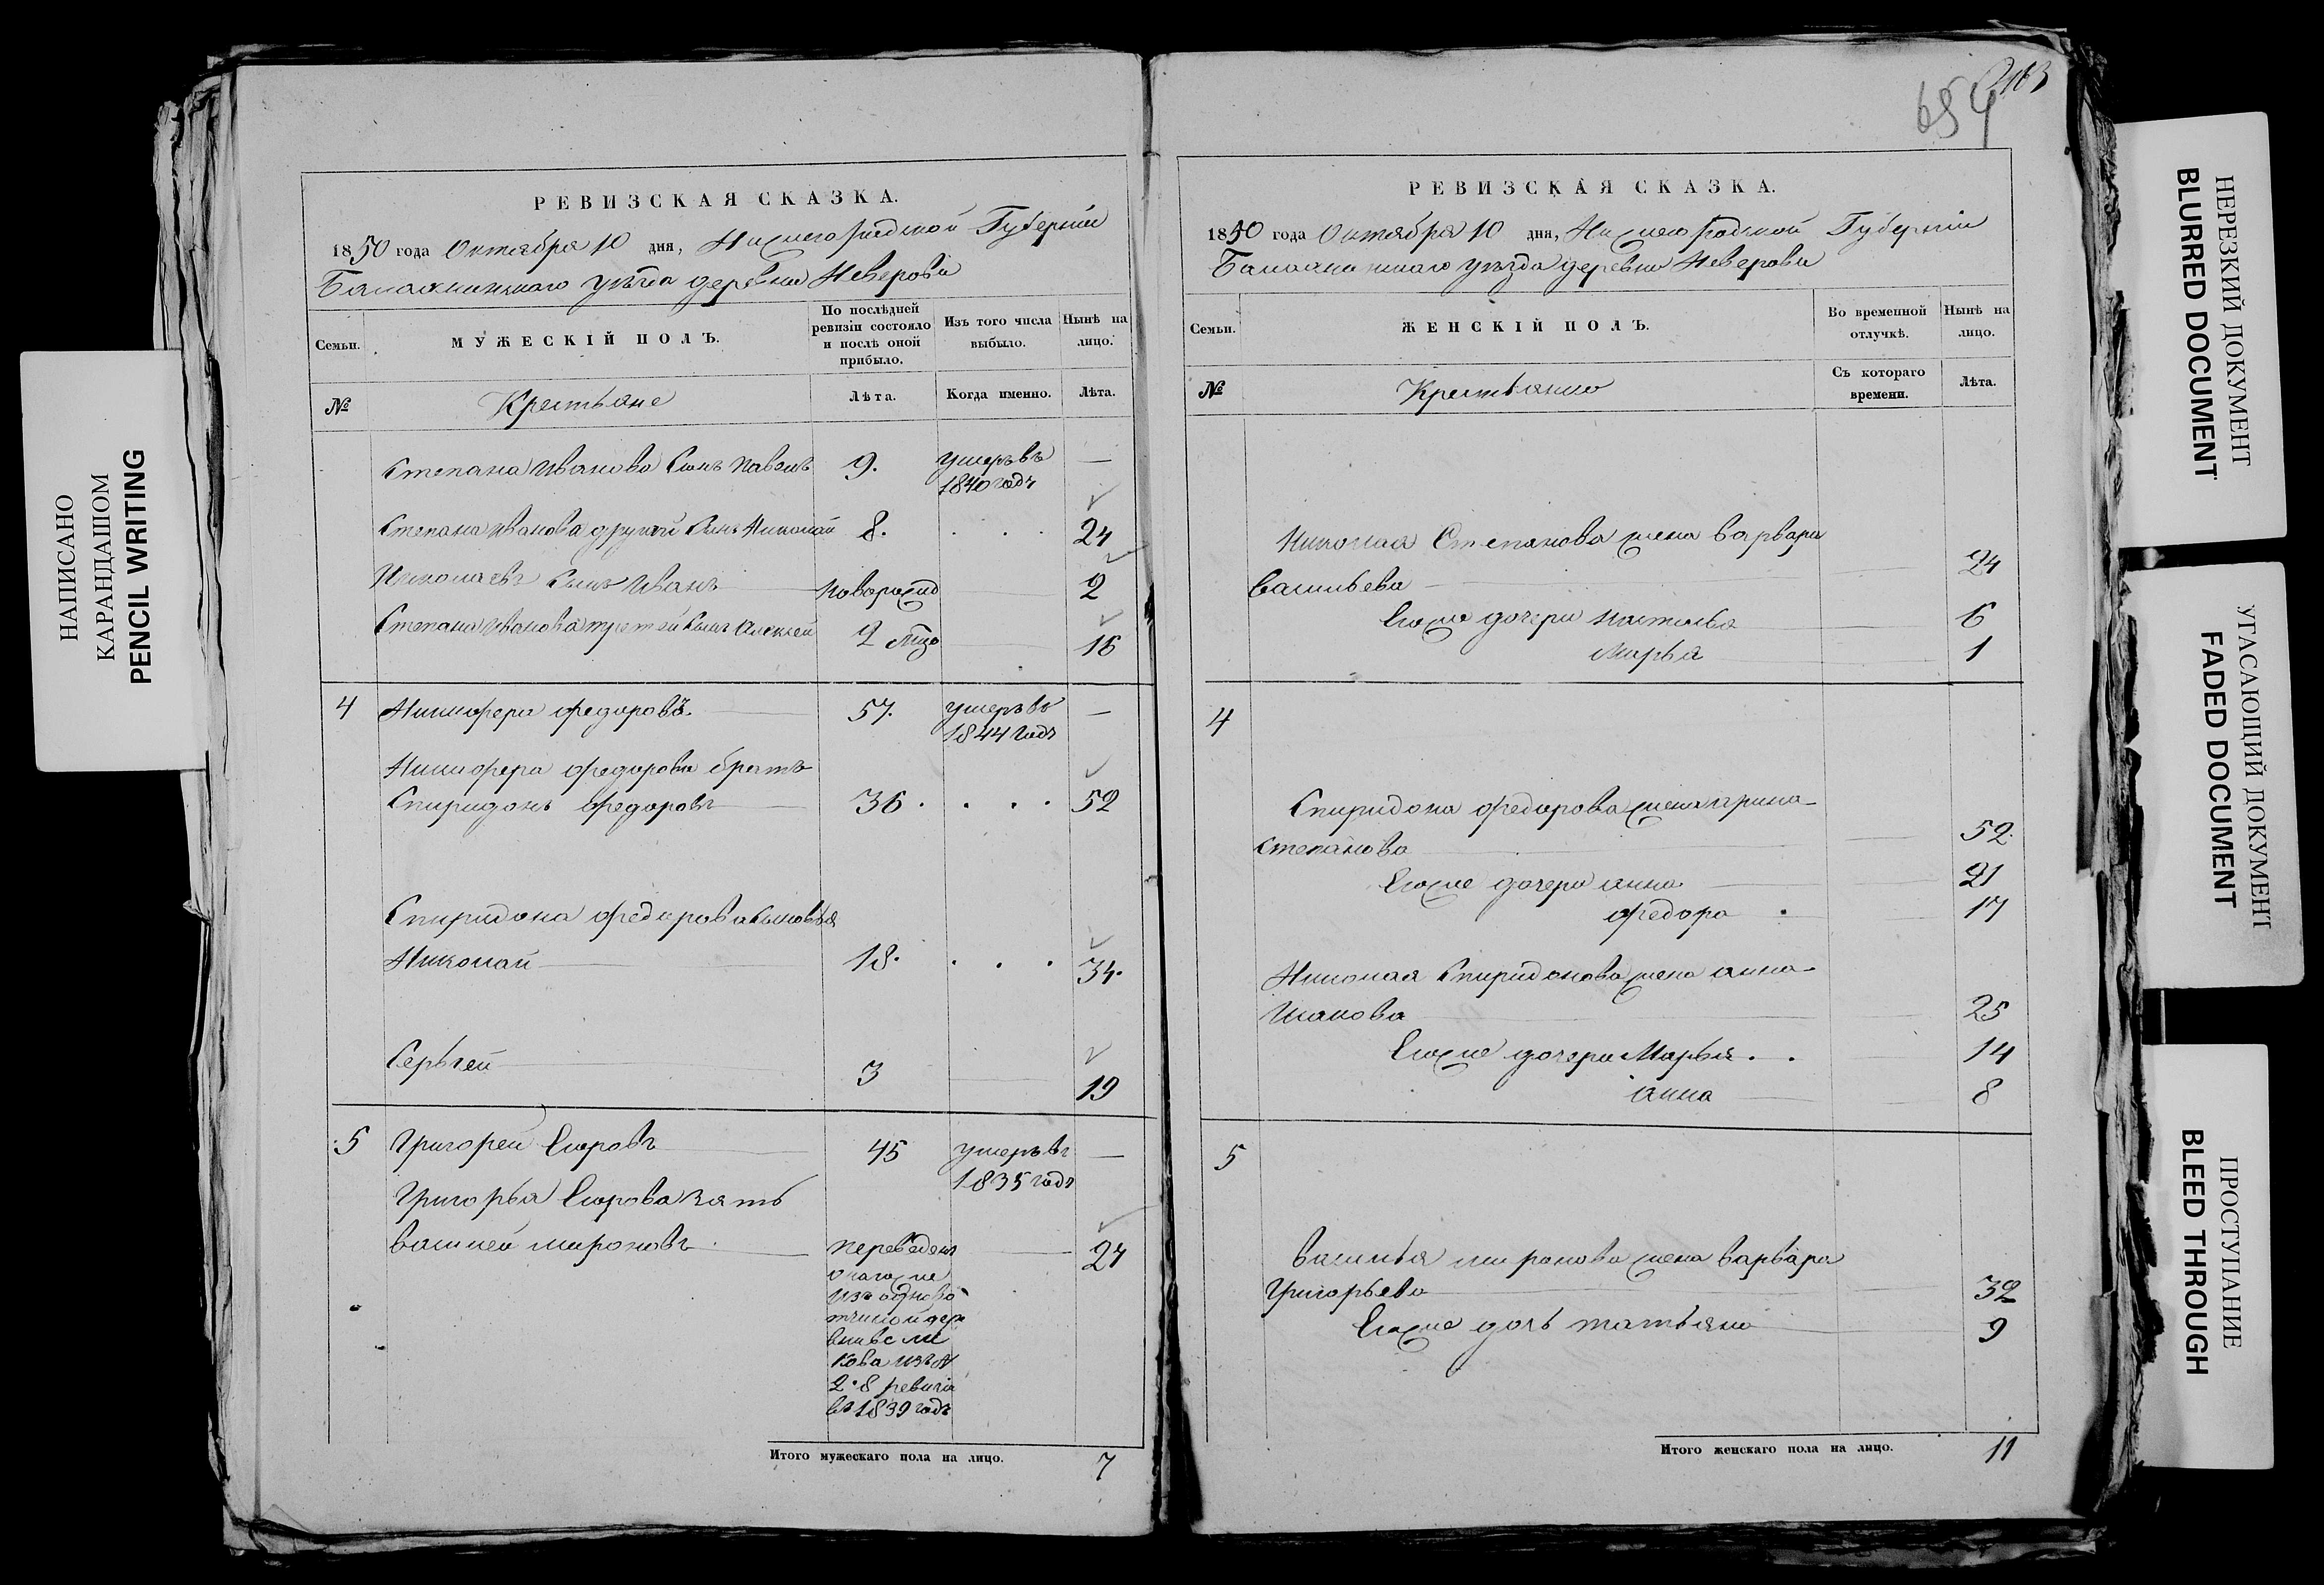 НАПИСАНО
КАРАНДАШОМ
PENCIL WRITING
РЕВИЗСКАЯ СКАЗКА.
1850 года Октября 10 дня, Нижегородской Губернии
Балахнинскаго уезда деревни Неверова
Семьи.
МУЖЕСКІЙ ПОЛЪ.
По послѣдней ревизіи состояло и послѣ оной прибыло.
Изъ того числа выбыло.
Нынѣ на лицо.
№
Крестьяне
Лѣта.
Когда именно.
Лѣта.
Степана Иванова Сынъ Павелъ 9. умеръ въ —
1840 годъ
Степана Иванова другой Сынъ Николай 8. . . . 24
Николаевъ сынъ Иванъ новорожд 2
Степана Иванова третей сынъ Алексей 2 16
4 Никифера федоровъ. 57. умеръ въ —
1844 годъ
Никифера федорова братъ
Спиридонъ федоровъ 36. . . . 52
Спиридона федорова сыновья
Николай 18. . . . 34.
Серьгей 3 19
5 Григорей Егоровъ 45 умеръ въ —
1835 годъ
Григорья Егорова зять
Василей мироновъ. переведенъ 27
изъ одново
тчиной дер
2. 8 ревизіи
въ 1839 годъ
Итого мужескаго пола на лицо. 7
654
РЕВИЗСКАЯ СКАЗКА.
1850 года Октября 10 дня, Нижегородской Губернии
Балахнинскаго уезда деревни Неверова
Семьи.
ЖЕНСКІЙ ПОЛЪ.
Во временной отлучкѣ.
Нынѣ на лицо.
№
Крестьянно
Съ котораго времени.
Лѣта.
Николая Степанова жена варвара
васильева 24
Егоже дочери настасья 6
Марья 1
4
Спиридона федорова жена арина
степанова 52.
Егоже дочери анна 21
федора . 17
Николая Спиридонова жена анна
Исакова 25
Егоже дочери Марья. . 14
анна 8
5
василья миронова жена варвара
григорьева 32
Егоже дочь татьяна 9
Итого женскаго пола на лицо. 11
НЕРЕЗКИЙ ДОКУМЕНТ
BLURRED DOCUMENT
УГАСАЮЩИЙ ДОКУМЕНТ
FADED DOCUMENT
ПРОСТУПАНИЕ
BLEED THROUGH